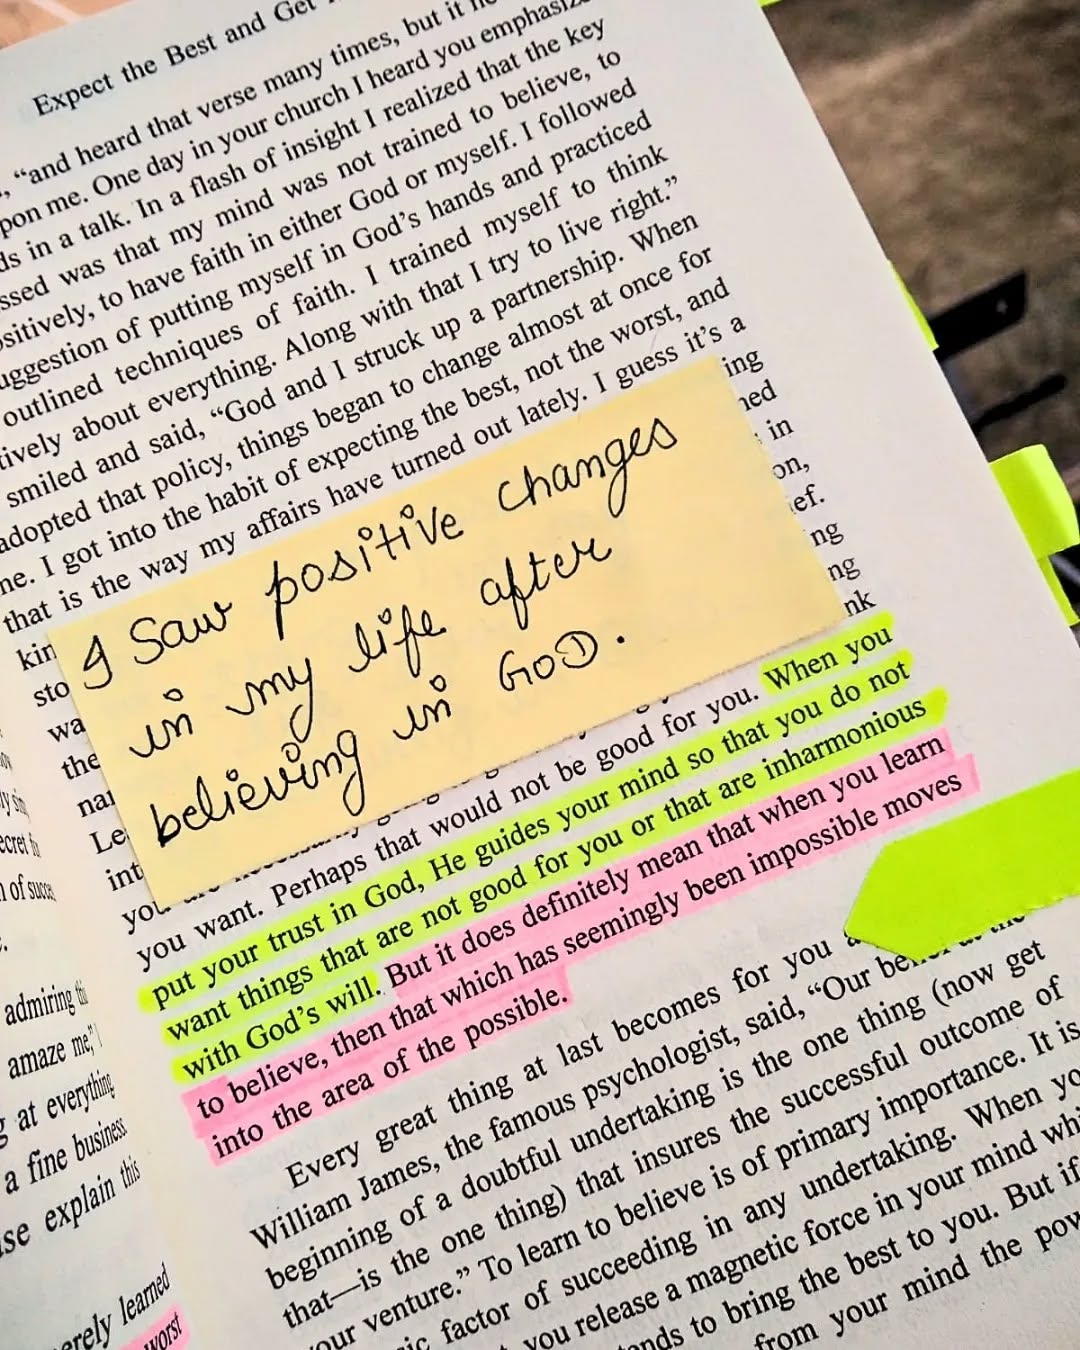 Expect the Best and Get
"and heard that verse many times, but it
upon me. One day in your church I heard you emphasize
in a talk. In a flash of insight I realized that the key
was that my mind was not trained to believe, to
to have faith in either God or myself. I followed
of putting myself in God's hands and practiced
outlined techniques of faith. I trained myself to think
about everything. Along with that I try to live right."
smiled and said, "God and I struck up a partnership. When
adopted that policy, things began to change almost at once for
me. I got into the habit of expecting the best, not the worst, and
that is the way my affairs have turned out lately. I guess it's a
I Saw positive changes
in my life after
believing in GOD.
you want. Perhaps that would not be good for you. When you
put your trust in God, He guides your mind so that you do not
want things that are not good for you or that are inharmonious
with God's will. But it does definitely mean that when you learn
to believe, then that which has seemingly been impossible moves
into the area of the possible.
Every great thing at last becomes for you
William James, the famous psychologist, said, "Our
beginning of a doubtful undertaking is the one thing (now get
that—is the one thing) that insures the successful outcome of
venture." To learn to believe is of primary importance. It is
factor of succeeding in any undertaking. When
you release a magnetic force in your mind
to bring the best to you. But if
from your mind the
admiring
amaze me,"
at everything
a fine business
explain this
learned
worst